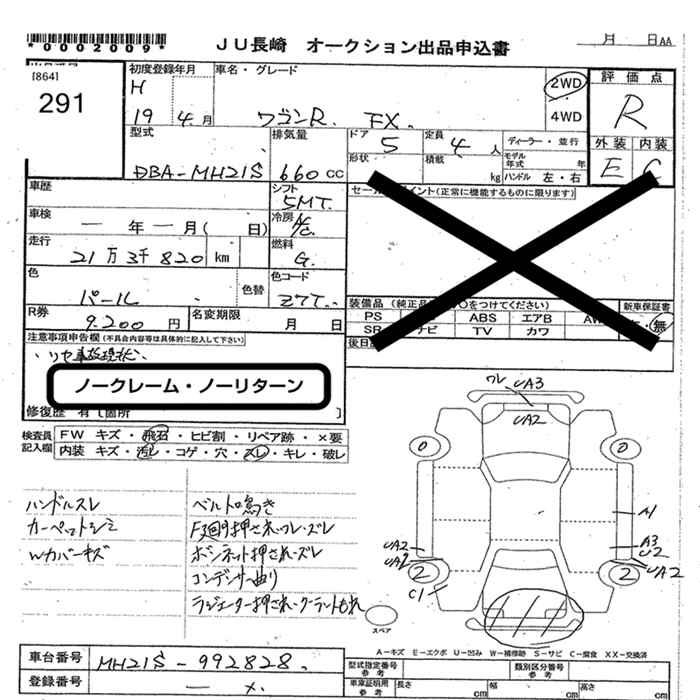 *0002009*
JU長崎 オークション出品申込書
月 日AA
[864]
291
初度登録年月
車名・グレード
2WD
4WD
評価点
H
19 4月
ワゴンR. FX.
R
型式
排気量
ドア
5
定員
4人
ディーラー・並行
外装 内装
DBA-MH21S
660cc
形状
積載
kg
モデル年式 年
ハンドル 左・右
E C
車歴
シフト
5MT.
車検
一 年 一 月( 日)
冷房
A/C.
走行
21万3千820 km
燃料
G.
色
パール
色替
色コード
Z7T.
R券
9.200 円
名変期限
月 日
装備品
PS
ABS
エアB
TV
カワ
新車保証書
無
注意事項申告欄(不具合内容等は具体的に記入して下さい)
リヤ事故現状、
ノークレーム・ノーリターン
修復歴 有 [箇所 ]
検査員記入欄
FW キズ・飛石・ヒビ割・リペア跡・×要
内装 キズ・汚レ・コゲ・穴・スレ・キレ・破レ
ハンドルスレ
カーペットシミ
Wカバーキズ
ベルト鳴き
F廻り押されワレ・ズレ
ボンネット押され・ズレ
コンデンサー曲り
ラジエーター押され・クーラントもれ
ワレ
UA3
UA2
0
0
A1
A3
U2
UA2
UA2
UA2
2
2
C1
スペア
A−キズ E−エクボ U−凹み W−補修跡 S−サビ C−腐食 XX−交換済
車台番号
MH21S-992828.
登録番号
型式指定番号
参考
類別区分番号
参考
車庫証明用
参考
長さ cm
幅 cm
高さ cm